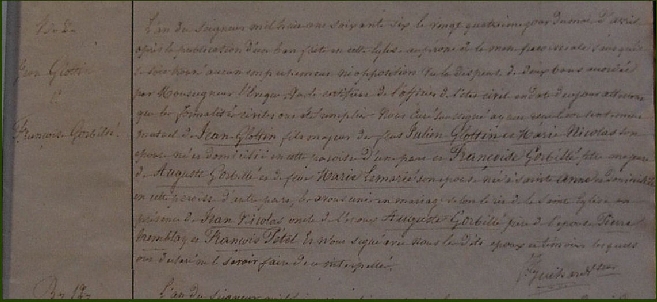 Jean Glottin
&
Françoise Gorbillé
L'an du Seigneur mil huit cent soixante six le vingt quatrième jour du mois d'avril
après la publication d'un ban faite en cette église au prône de la messe paroissiale sans qu'il
se soit trouvé aucun empêchement ni opposition Vu la dispense de deux bans accordée
par Monseigneur l'Evêque Vu le certificat de l'officier de l'état civil en date du jour
que les formalités civiles ont été remplies Nous Curé soussigné ayant reçu le consentement
mutuel de Jean Glottin fils majeur de feus Julien Glottin et Marie Nicolas son
épouse né et domicilié en cette paroisse d'une part et Françoise Gorbillé fille majeure
de Auguste Gorbillé et de feue Marie Lemarié son épouse née à Sainte Anne et domiciliée
en cette paroisse d'autre part, les avons unis en mariage selon le rit de la Sainte Eglise en
présence de Jean Nicolas oncle de l'époux Auguste Gorbillé père de l'épouse Pierre
Tremblay et François Pétel Et Nous signé avec nous les dits époux et témoins lesquels
ont déclaré ne savoir faire de ce interpellés.
L'an du Seigneur mil